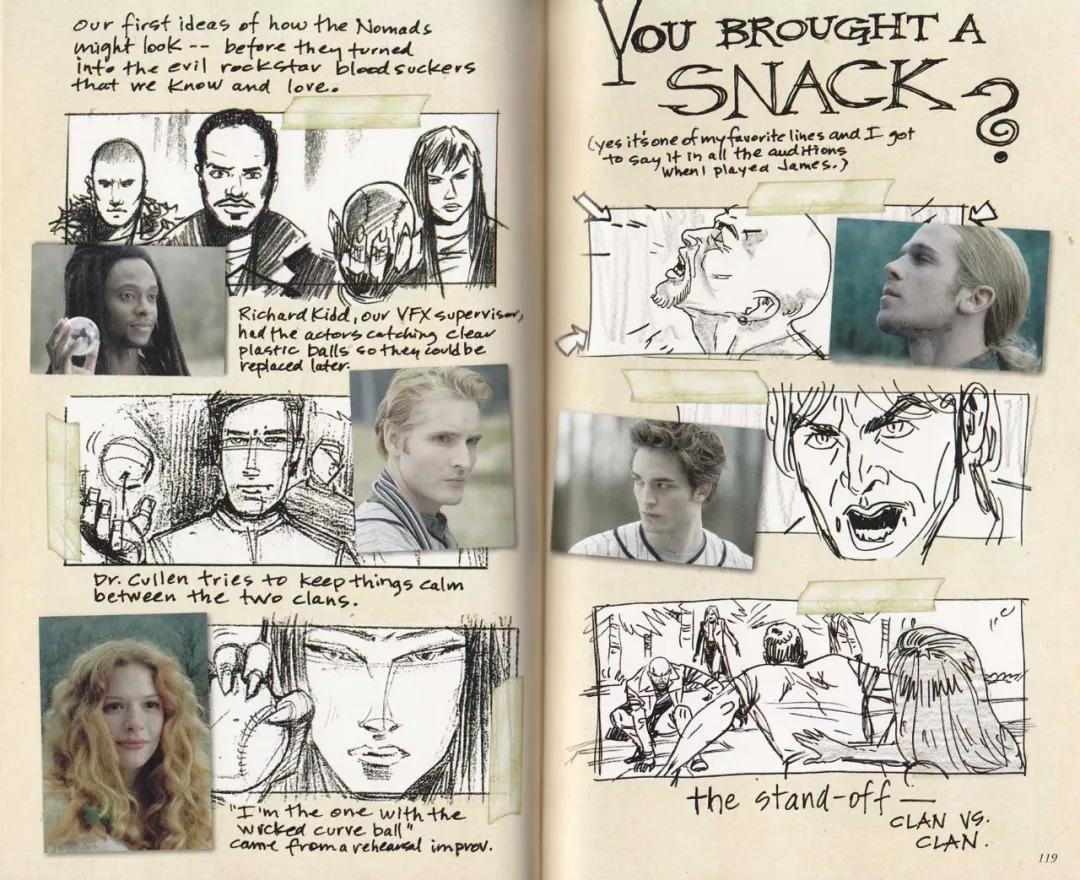 Our first ideas of how the Nomads
might look -- before they turned
into the evil rockstar bloodsuckers
that we know and love.
Richard Kidd, our VFX supervisor,
had the actors catching clear
plastic balls so they could be
replaced later.
Dr. Cullen tries to keep things calm
between the two clans.
"I'm the one with the
wicked curve ball"
came from a rehearsal improv.
YOU BROUGHT A
SNACK?
(yes it's one of my favorite lines and I got
to say it in all the auditions
when I played James.)
the stand-off —
CLAN VS.
CLAN.
119